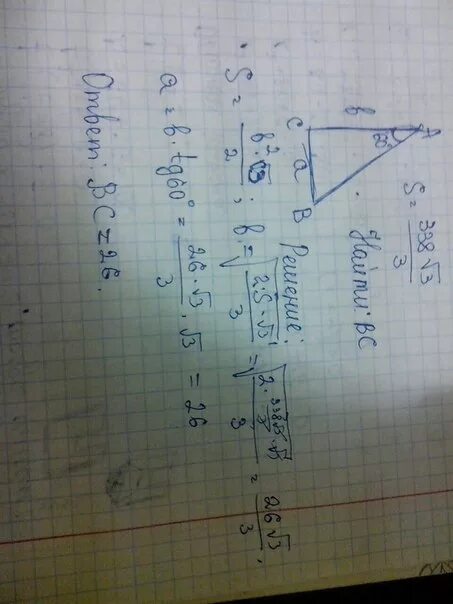 S = 338√3/3
Найти: BC
A
60°
b
C
a
B
Решение:
S = b²·√3/2; b = √(2·S·√3/3) = √(2·338√3/3·√3/3) = 26√3/3,
a = b·tg60° = 26·√3/3·√3 = 26
Ответ: BC = 26.